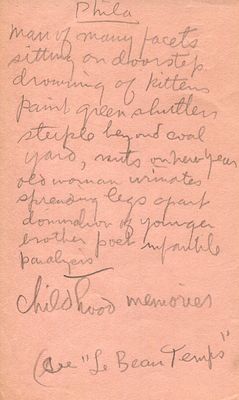 Phila
man of many facets
sitting on doorstep
drowning of kittens
paint green shutters
steeple beyond coal
yard, nuts on new year
old woman urinates
spreading legs apart
domination of younger
brother poet infantile
paralysis
Childhood memories
(see "Le Beau Temps")